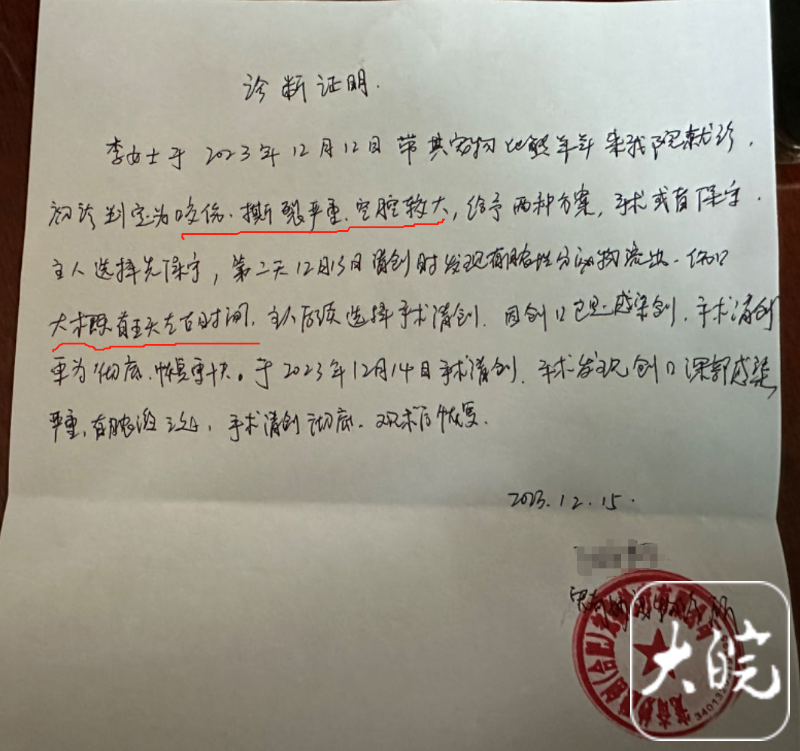 诊断证明.
李女士于2023年12月12日带其宠物比熊年年来我院就诊,
初诊判定为咬伤.撕裂严重.空腔较大,给予两种方案,手术或者保守.
主人选择先保守,第二天12月13日清创时发现有脓性分泌物流出.伤口
大概有三天左右时间.主人后续选择手术清创.因创口已是感染创.手术清创
更为彻底.恢复更快。于2023年12月14日手术清创.手术发现创口深部感染
严重,有脓液,手术清创彻底.观术后恢复.
2023.12.15.
大皖